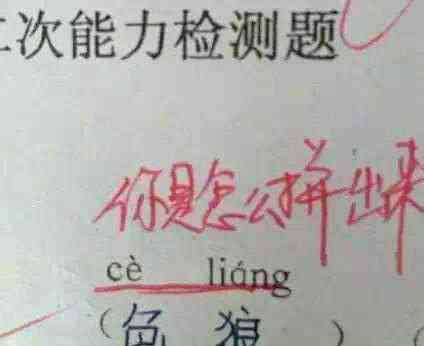 二次能力检测题
你是怎么拼出来
cè liáng
（色狼）（